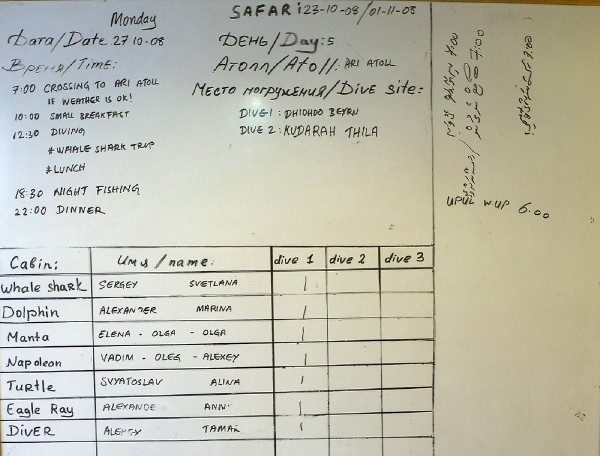 Monday
SAFARi 23-10-08/01-11-08
Дата/Date 27 10-08
ДЕНЬ/Day: 5
Время/Time:
Атолл/Atoll: ARI ATOLL
7:00 CROSSING TO ARI ATOLL
IF WEATHER IS OK!
Место погружения/Dive site:
10:00 SMALL BREAKFAST
DIVE 1 : DHIDHDO BEYRU
12:30 DIVING
DIVE 2 : KUDARAH THILA
*WHALE SHARK TRIP
*LUNCH
18:30 NIGHT FISHING
22:00 DINNER
7:00
7:00
7:00
UPUL W.UP 6.00
Cabin: Имя/name: dive 1 dive 2 dive 3
Whale shark SERGEY SVETLANA |
Dolphin ALEXANDER MARINA |
Manta ELENA - OLGA - OLGA |
Napoleon VADIM - OLEG - ALEXEY |
Turtle SVYATOSLAV ALINA |
Eagle Ray ALEXANDE ANN |
DIVER TAMAR |